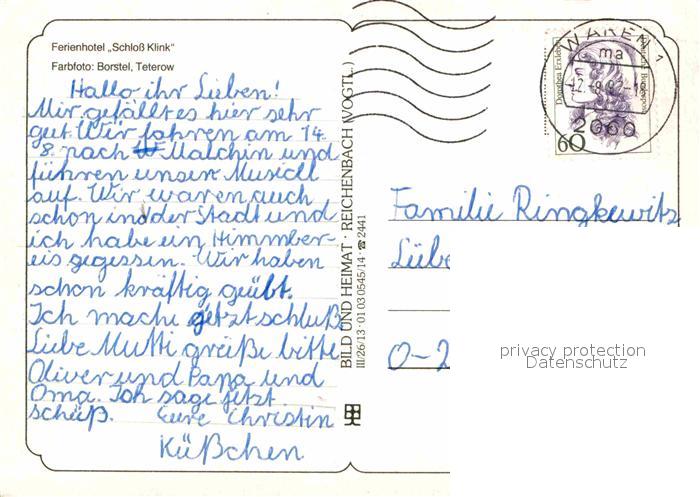 Ferienhotel „Schloß Klink"
Farbfoto: Borstel, Teterow
Hallo ihr Lieben!
Mir gefällt es hier sehr
gut. Wir fahren am 14.
8. nach Malchin und
führen unser Musicll
auf. Wir waren auch
schon in der Stadt und
ich habe ein Himmber-
eis gegessen. Wir haben
schon kräftig geübt.
Ich mache jetzt schluß
Liebe Mutti grüße bitte
Oliver und Papa und
Oma. Ich sage jetzt
schüß. Eure Christin
Küßchen
BILD UND HEIMAT · REICHENBACH (VOGTL.)
III/26/13 · 01 03 0545/14 · ☎ 2441
WAREN 1
ma
2060
Dorothea Erxleben
Deutsche Bundespost
60
Familie Ringkewitz
Lübe
O-2
privacy protection
Datenschutz